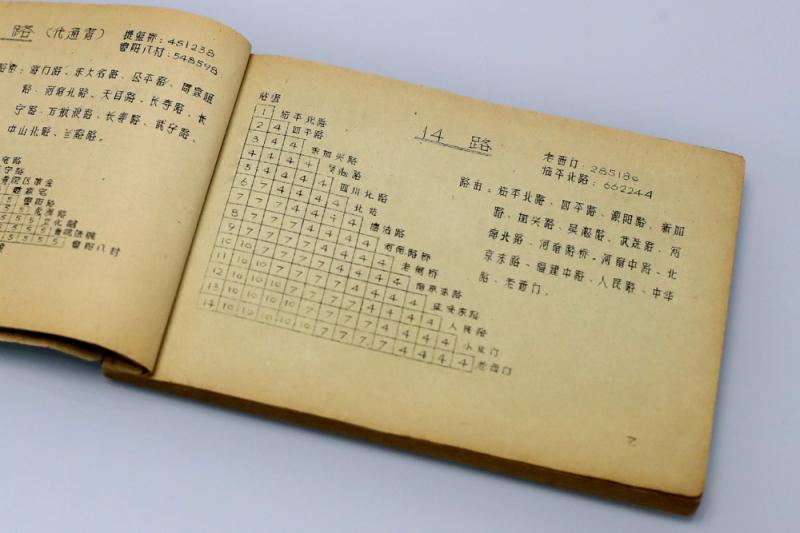 路（代通宵）
提篮桥：451238
曹阳八村：548598
海门路、东大名路、公平路、周家咀
路、河南北路、天目路、长寿路、长
宁路、万航渡路、长寿路、武宁路、
中山北路、兰溪路。
曹阳路
5 5 5 5 5 曹阳八村
14 路
老西门：285180
临平北路：662244
路由：临平北路、四平路、溧阳路、新加
路、加兴路、吴淞路、武进路、河
南北路、河南路桥、河南中路、北
京东路、福建中路、人民路、中华
路、老西门。
站级
1 临平北路
2 4 四平路
3 4 4 东加兴路
4 4 4 4 吴淞路
5 4 4 4 4 四川北路
6 7 4 4 4 4 北站
7 7 4 4 4 4 4 塘沽路
8 7 7 4 4 4 4 4 河南路桥
9 7 7 7 4 4 4 4 4 老闸桥
10 10 7 7 7 4 4 4 4 4 南京东路
11 10 7 7 7 7 4 4 4 4 4 延安东路
12 10 10 7 7 7 7 4 4 4 4 4 人民路
13 10 10 10 7 7 7 7 4 4 4 4 4 小北门
14 10 10 10 10 7 7 7 7 4 4 4 4 4 老西门
7